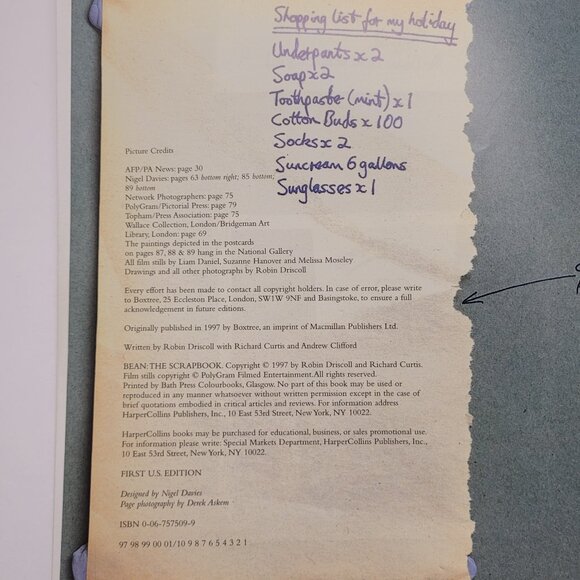 Shopping list for my holiday
Underpants x 2
Soap x 2
Toothpaste (mint) x 1
Cotton Buds x 100
Socks x 2
Suncream 6 gallons
Sunglasses x 1
Picture Credits
AFP/PA News: page 30
Nigel Davies: pages 63 bottom right; 85 bottom;
89 bottom
Network Photographers: page 75
PolyGram/Pictorial Press: page 79
Topham/Press Association: page 75
Wallace Collection, London/Bridgeman Art
Library, London: page 69
The paintings depicted in the postcards
on pages 87, 88 & 89 hang in the National Gallery
All film stills by Liam Daniel, Suzanne Hanover and Melissa Moseley
Drawings and all other photographs by Robin Driscoll
Every effort has been made to contact all copyright holders. In case of error, please write
to Boxtree, 25 Eccleston Place, London, SW1W 9NF and Basingstoke, to ensure a full
acknowledgement in future editions.
Originally published in 1997 by Boxtree, an imprint of Macmillan Publishers Ltd.
Written by Robin Driscoll with Richard Curtis and Andrew Clifford
BEAN: THE SCRAPBOOK. Copyright © 1997 by Robin Driscoll and Richard Curtis.
Film stills copyright © PolyGram Filmed Entertainment.All rights reserved.
Printed by Bath Press Colourbooks, Glasgow. No part of this book may be used or
reproduced in any manner whatsoever without written permission except in the case of
brief quotations embodied in critical articles and reviews. For information address
HarperCollins Publishers, Inc., 10 East 53rd Street, New York, NY 10022.
HarperCollins books may be purchased for educational, business, or sales promotional use.
For information please write: Special Markets Department, HarperCollins Publishers, Inc.,
10 East 53rd Street, New York, NY 10022.
FIRST U.S. EDITION
Designed by Nigel Davies
Page photography by Derek Askem
ISBN 0-06-757509-9
97 98 99 00 01/10 9 8 7 6 5 4 3 2 1